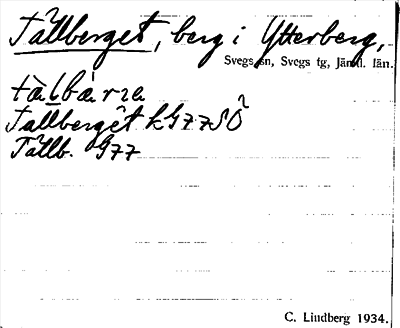 Tallberget, berg i Ytterberg,
Svegs sn, Svegs tg, Jämtl. län.
Tallberget kG77SÖ
Tallb. G77
C. Lindberg 1934.